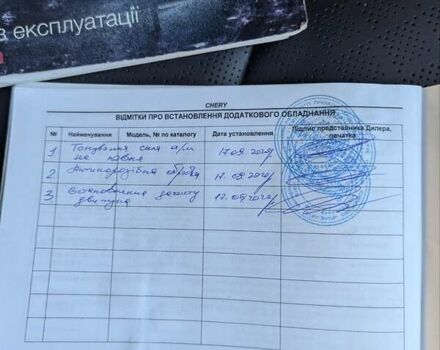 з експлуатації
CHERY
ВІДМІТКИ ПРО ВСТАНОВЛЕННЯ ДОДАТКОВОГО ОБЛАДНАННЯ
№ Найменування Модель, № по каталогу Дата установлення Підпис представника Дилера, печатка
1 Тонування скла а/м 17.09.2020
не повне
2 Антикорозійна 17.09.2020
3 Встановлення захисту 17.09.2020
двигуна